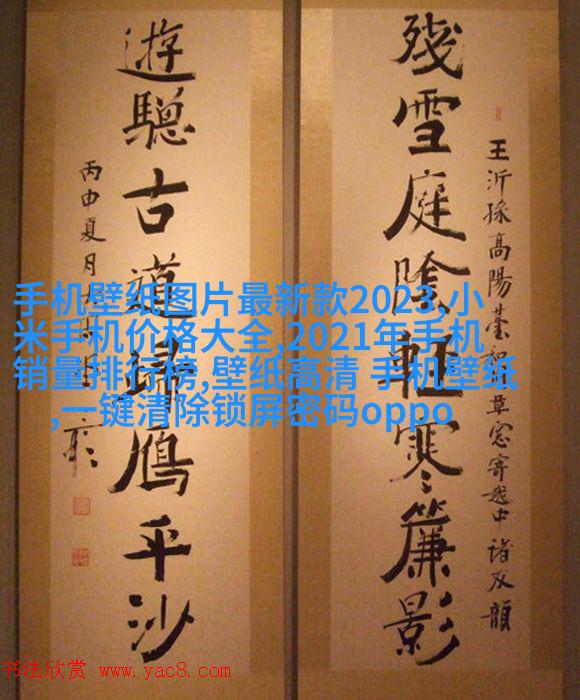 殘雪庭陰輕寒簾影
王沂孫高陽臺和周草窓寄越中諸友韻
遊驄古道歸鴈平沙
丙申夏月
手机壁纸图片最新款2023,小
米手机价格大全,2021年手机
销量排行榜,壁纸高清 手机壁纸
,一键清除锁屏密码oppo
书法欣赏 www.yac8.com